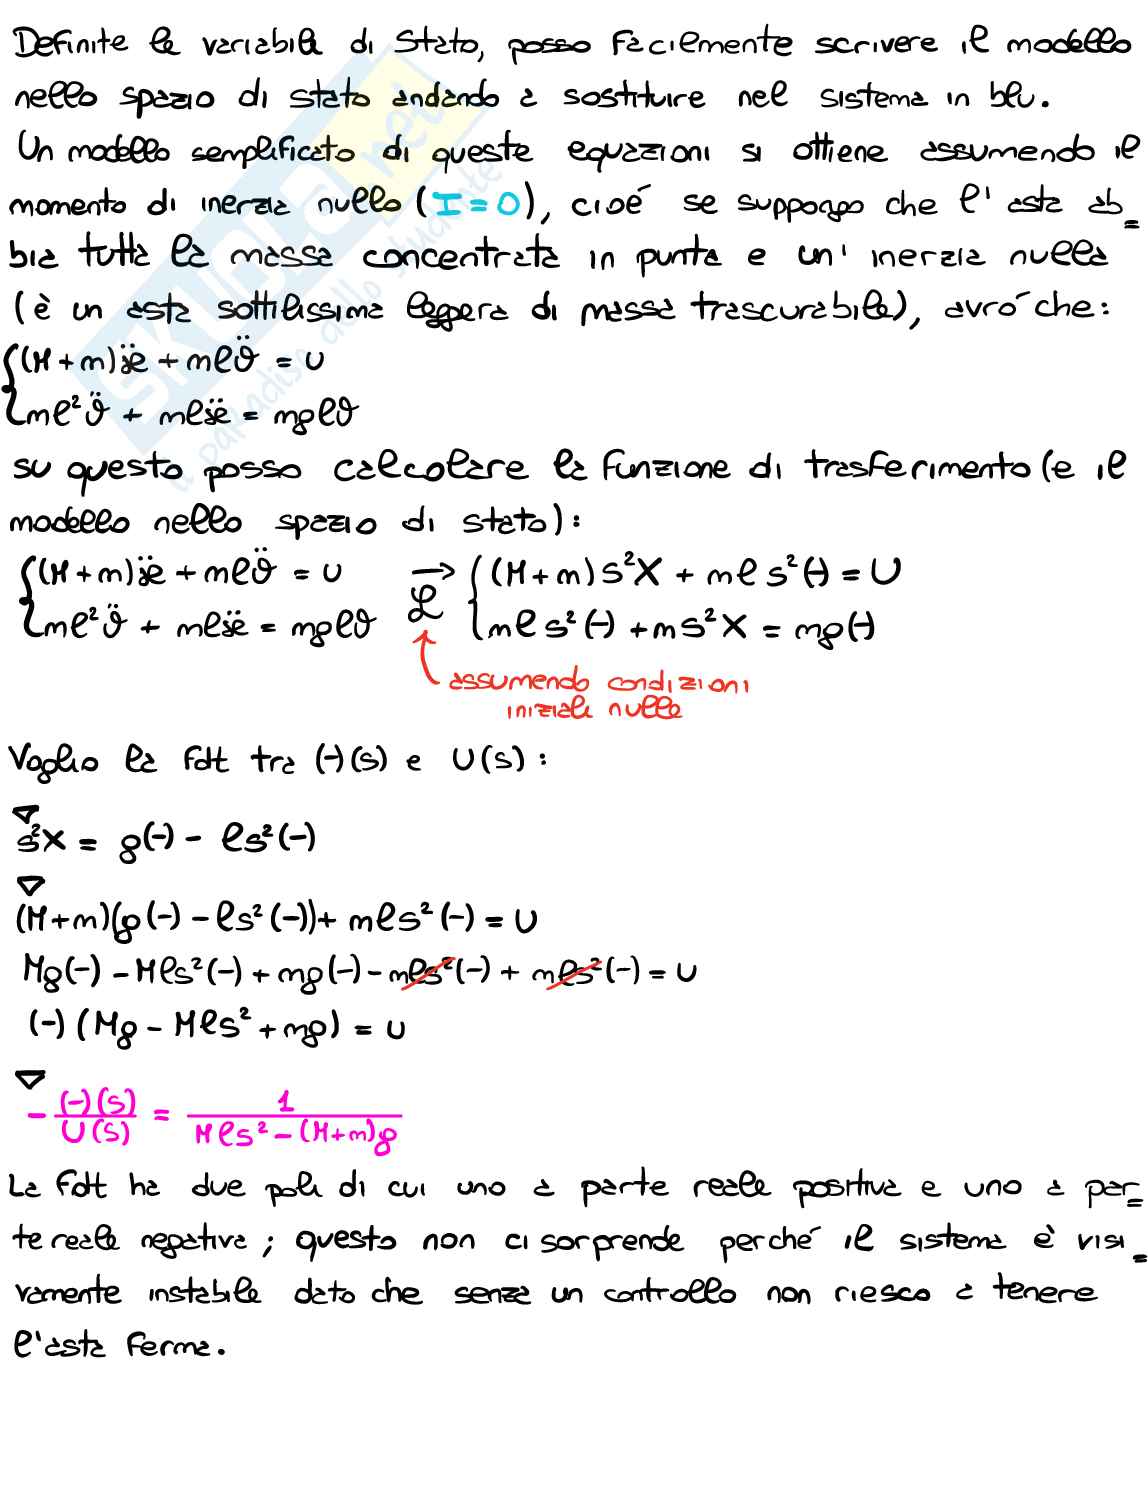 Definite le variabili di stato, posso facilmente scrivere il modello
nello spazio di stato andando a sostituire nel sistema in blu.
Un modello semplificato di queste equazioni si ottiene assumendo il
momento di inerzia nullo (I=0), cioé se suppongo che l'asta ab_
bia tutta la massa concentrata in punta e un' inerzia nulla
(è un asta sottilissima leggera di massa trascurabile), avró che:
{(M+m)ẍ + mlϑ̈ = u
ml²ϑ̈ + mlẍ = mglϑ
su questo posso calcolare la funzione di trasferimento (e il
modello nello spazio di stato):
{(M+m)ẍ + mlϑ̈ = u → {(M+m)s²X + mls²Θ = U
ml²ϑ̈ + mlẍ = mglϑ ℒ mls²Θ + ms²X = mgΘ
assumendo condizioni
iniziali nulle
Voglio la fdt tra Θ(s) e U(s):
s²X = gΘ - ls²Θ
(M+m)(gΘ - ls²Θ) + mls²Θ = U
MgΘ - Mls²Θ + mgΘ - mls²Θ + mls²Θ = U
Θ(Mg - Mls² + mg) = U
- Θ(s)/U(s) = 1/(Mls² - (M+m)g)
La fdt ha due poli di cui uno a parte reale positiva e uno a par_
te reale negativa; questo non ci sorprende perché il sistema è visi_
vamente instabile dato che senza un controllo non riesco a tenere
l'asta ferma.
SKUOLA.net
il paradiso dello studente